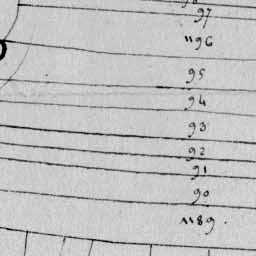 97
"96
95
94
93
92
91
90
"89.